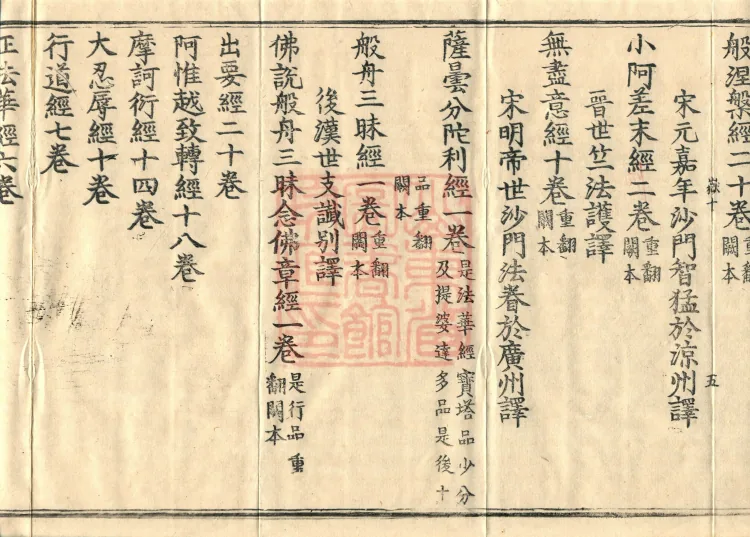 般涅槃經二十卷重翻闕本
宋元嘉年沙門智猛於涼州譯
嶽十 五
小阿差末經二卷重翻闕本
晉世竺法護譯
無盡意經十卷重翻闕本
宋明帝世沙門法眷於廣州譯
薩曇分陁利經一卷是法華經寶塔品少分及提婆達多品是後十
品重翻闕本
般舟三昧經一卷重翻闕本
後漢世支讖別譯
佛說般舟三昧念佛章經一卷是行品重翻闕本
出要經二十卷
阿惟越致轉經十八卷
摩訶衍經十四卷
大忍辱經十卷
行道經七卷
正法華經六卷